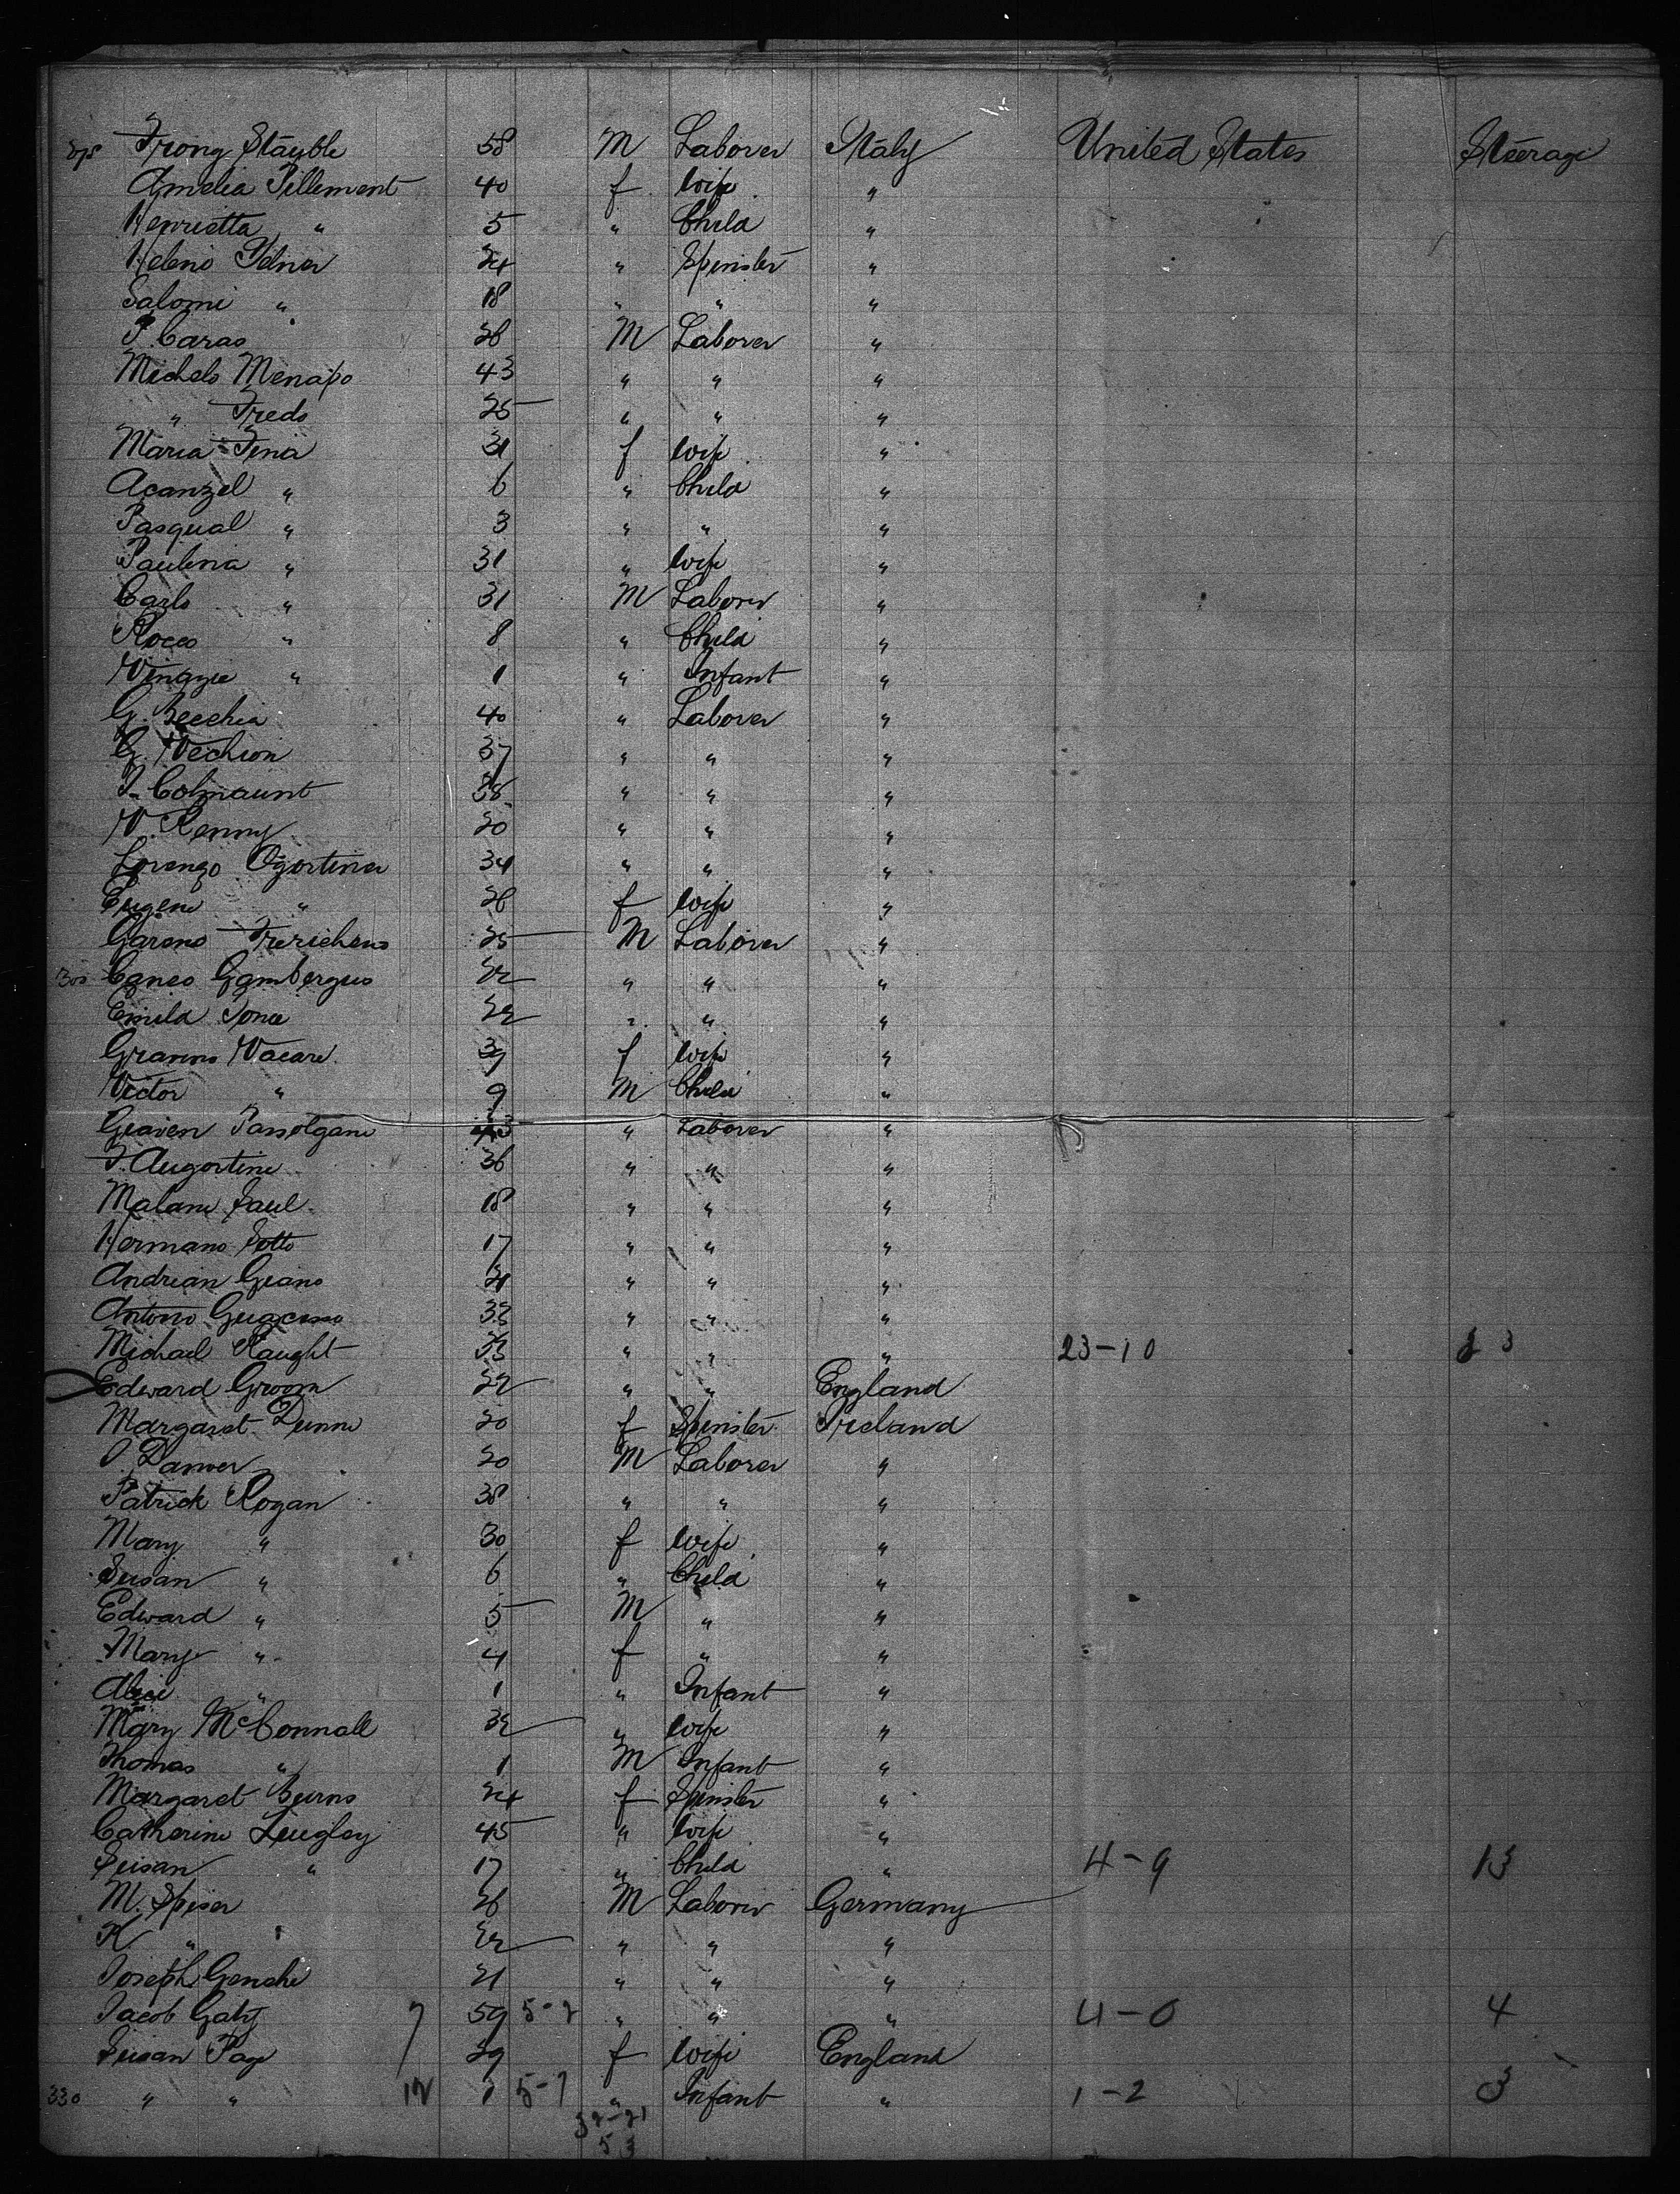 Frony Stauble 58 M Laborer Italy United States Steerage
Amelia Pillement 40 f Wife "
Henrietta " 5 " Child "
Heleno Pelner 24 " Spinster "
Salomi " 18 " " "
P. Caras 28 M Laborer "
Michelo Menapo 43 " " "
" Fredo 25 " " "
Maria Fena 31 f Wife "
Acanzel " 6 " Child "
Pasqual " 3 " " "
Paulina " 31 " Wife "
Carlo " 31 M Laborer "
Rocco " 8 " Child "
" 1 " Infant "
G. Becchia 40 " Laborer "
G. Vechion 37 " " "
Colmaunt 38 " " "
V. Renny 20 " " "
Lorenzo Ogortina 34 " " "
Eugene " 28 f Wife "
Gareno Frerichens 25 M Laborer "
300 Caneo Gambergus 22 " " "
Emila Tonce 22 " " "
Granno Vacare f Wife "
Victor " 9 M Child "
Geaven " Laborer "
F. Augortine 36 " " "
Malane Saul 18 " " "
Hermano Sotto 17 " " "
Andrian Geano 21 " " "
Antono 33 " " "
Michael Raught " " " 23-10 23
Edward Groom 22 " " England
Margaret Dunne 20 f Spinster Ireland
Danver 20 M Laborer "
Patrick Rogan 38 " " "
Mary " 30 f Wife "
Susan " 6 " Child "
Edward " 5 M " "
Mary " 4 f " "
Alice " 1 " Infant "
Mary McConnall 32 " Wife "
Thomas " 1 M Infant "
Margaret Burns 24 f Spinster "
Catherine Leugley 45 " Wife "
Susan " 17 " Child " 4-9 13
M. Speser 28 M Laborer Germany
K. " 22 " " "
Joseph Genshe 21 " " "
Jacob Gahy 7 59 5-2 " " " 4-0 4
Susan Page 29 f Wife England
330 " " 12 1 5-7 " Infant " 1-2 3
32-21
53